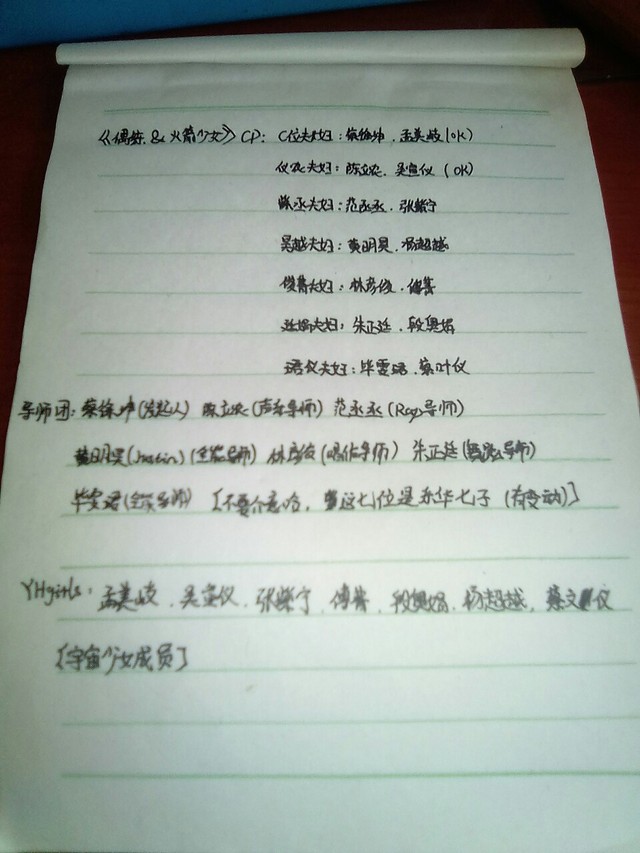 《偶练 & 火箭少女》CP: C位夫妇:蔡徐坤、孟美岐(OK)
仪农夫妇:陈立农、吴宣仪 (OK)
夫妇:范丞丞、张紫宁
昊越夫妇:黄明昊、杨超越
俊菁夫妇:林彦俊、傅菁
夫妇:朱正廷、段奥娟
夫妇:毕雯珺、蔡 仪
导师团:蔡徐坤(发起人) 陈立农(声乐导师) 范丞丞(Rap导师)
黄明昊(Justin)(全能导师) 林彦俊(唱作导师) 朱正廷(舞蹈导师)
毕雯珺(全能导师) [不要介意哈,当这七位是乐华七子(有变动)]
YHgirls:孟美岐、吴宣仪、张紫宁、傅菁、段奥娟、杨超越、蔡文 仪
[宇宙少女成员]